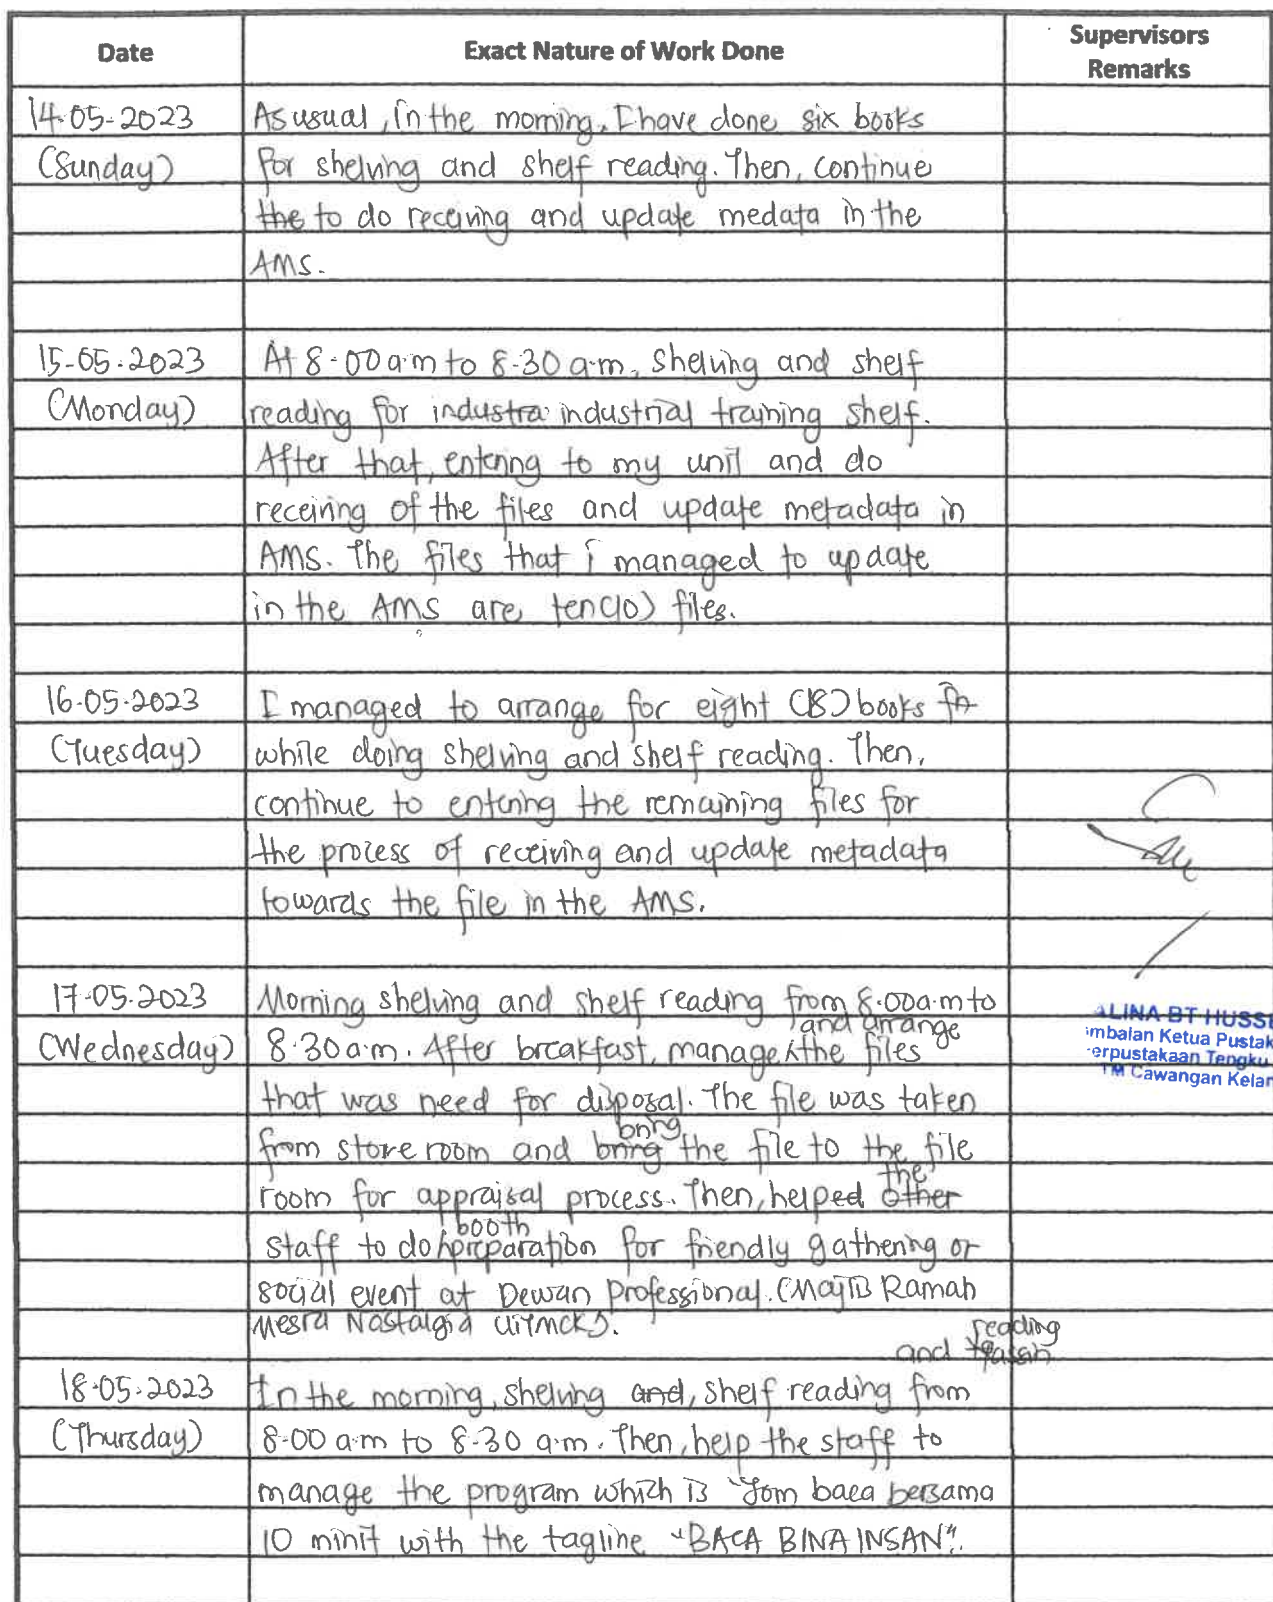 Date Exact Nature of Work Done Supervisors Remarks
14-05-2023 As usual, in the morning, I have done six books
(Sunday) for shelving and shelf reading. Then, continue
the to do receiving and update medata in the
AMS.
15-05-2023 At 8.00 a.m to 8.30 a.m, shelving and shelf
(Monday) reading for industra industrial training shelf.
After that, entering to my unit and do
receiving of the files and update metadata in
AMS. The files that i managed to update
in the AMS are ten(10) files.
16-05-2023 I managed to arrange for eight (8) books
(Tuesday) while doing shelving and shelf reading. Then,
continue to entering the remaining files for
the process of receiving and update metadata
towards the file in the AMS.
17-05-2023 Morning shelving and shelf reading from 8.00a.m to
(Wednesday) 8.30 a.m. After breakfast, manage and arrange the files
that was need for disposal. The file was taken
from store room and bring bring the file to the file
room for appraisal process. Then, helped other the
staff to do booth preparation for friendly gathering or
social event at Dewan Professional. (Majlis Ramah
Mesra Nostalgia UiTMCK).
18-05-2023 In the morning, shelving and, shelf reading and reading from
(Thursday) 8.00 a.m to 8.30 a.m. Then, help the staff to
manage the program which is "Jom baca bersama
10 minit with the tagline "BACA BINA INSAN".
ALINA BT HUSSE
mbalan Ketua Pustak
erpustakaan Tengku
TM Cawangan Kelan